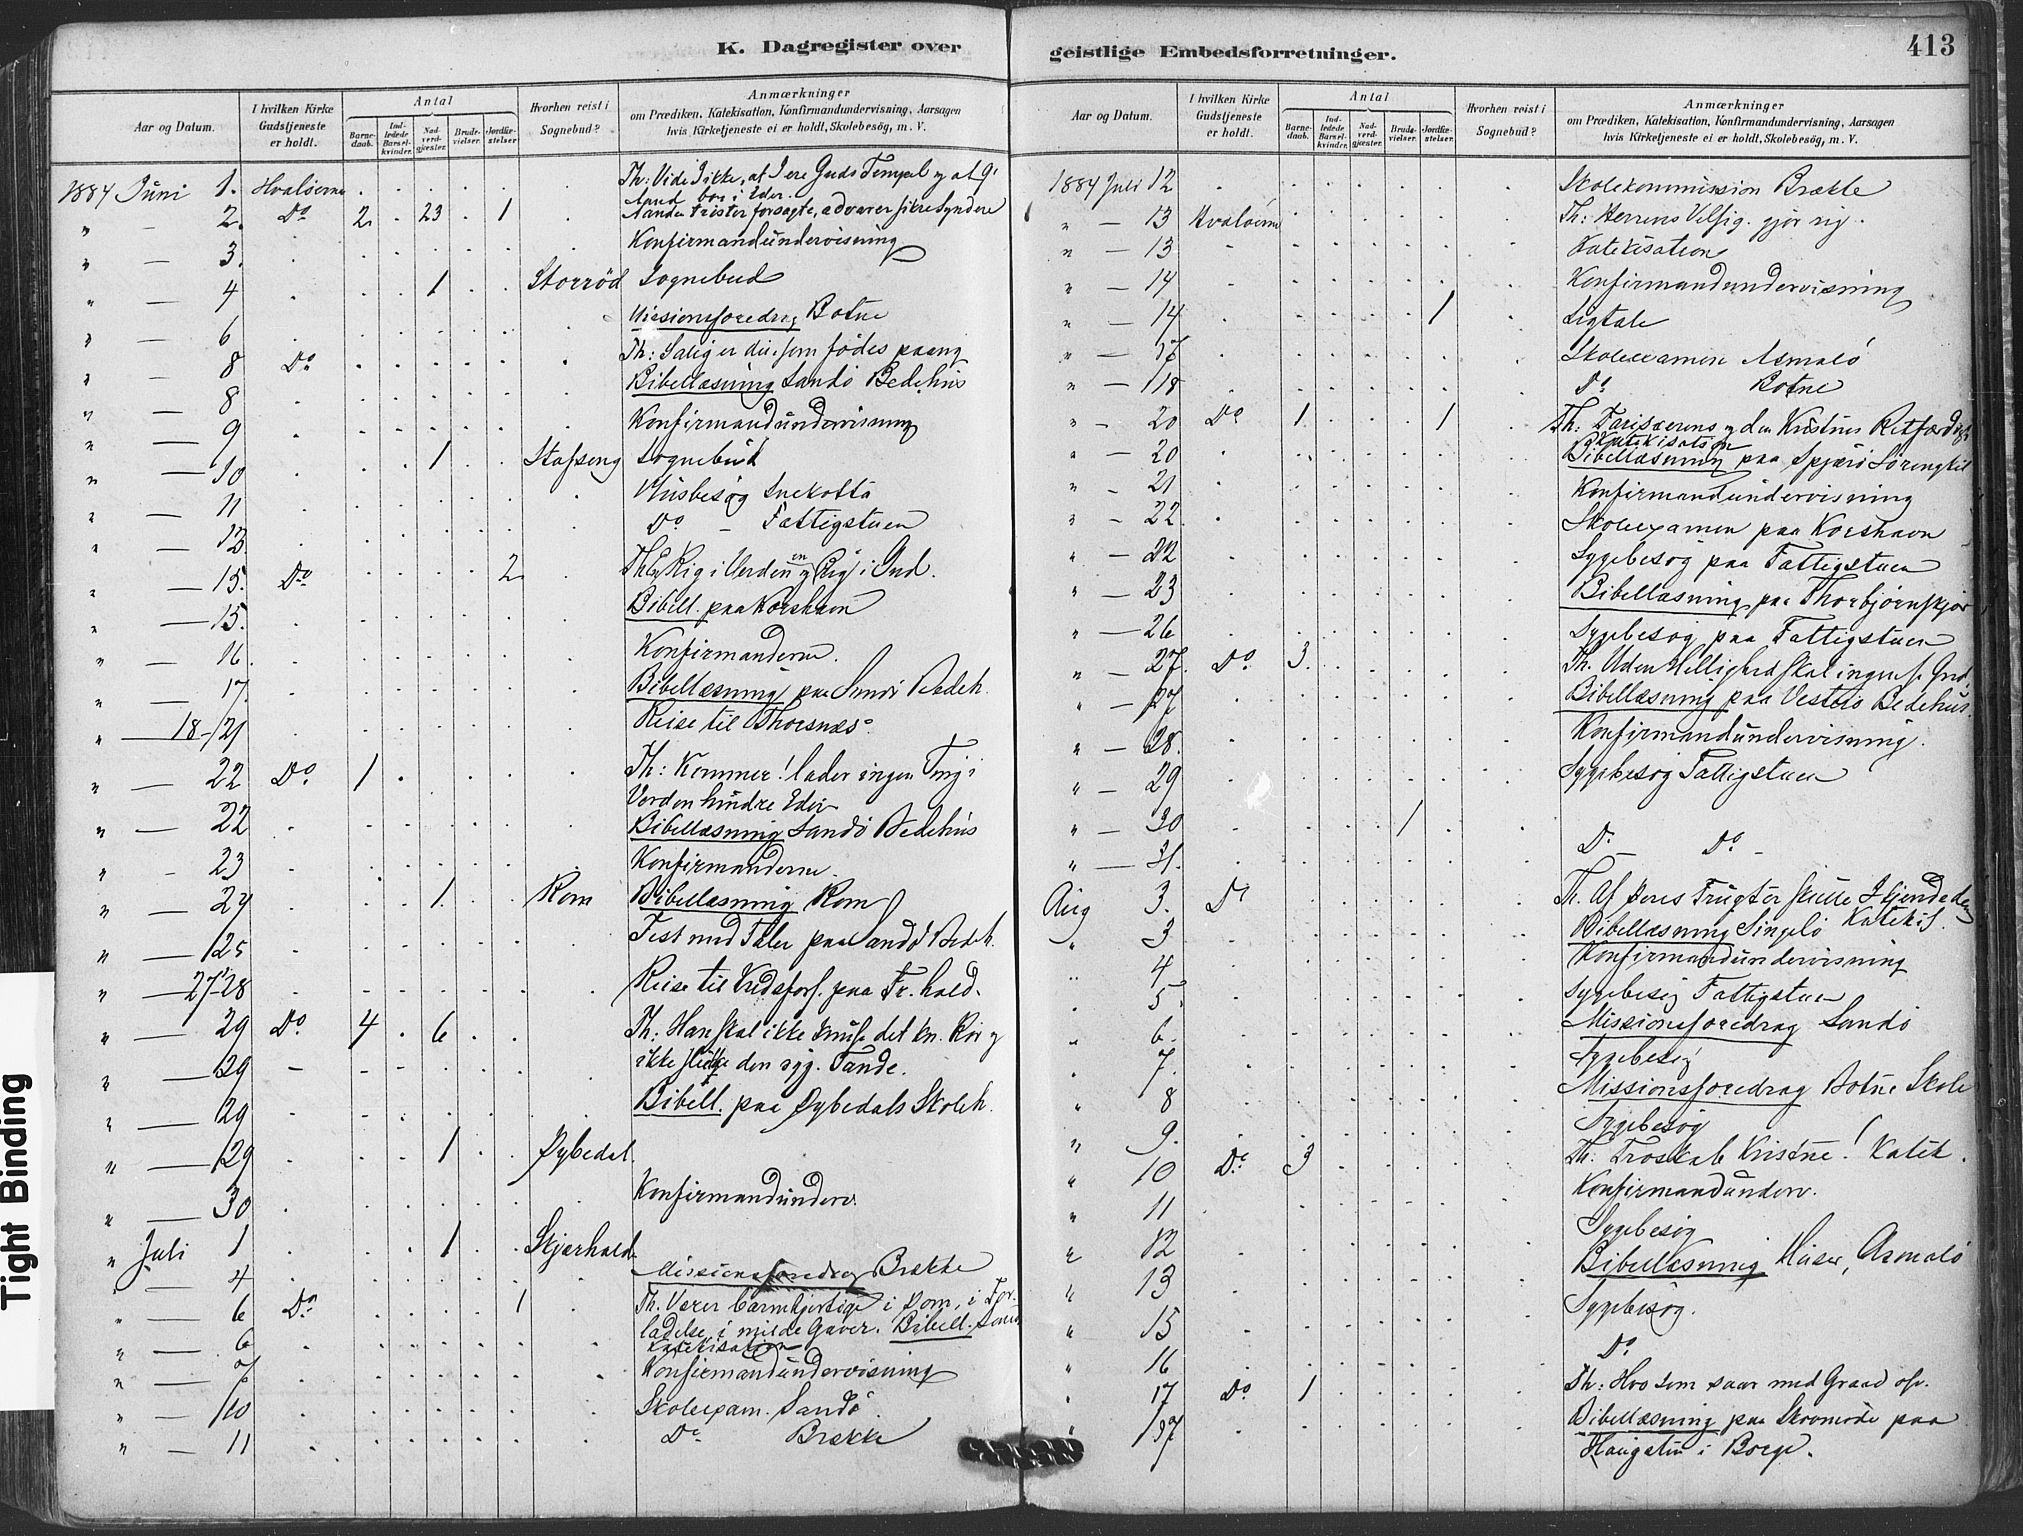 K. Dagregister over
Aar og Datum.
I hvilken Kirke Gudstjeneste er holdt.
Antal
Barnedaab.
Indledede Barselkvinder.
Nadverdgjæster.
Brudevielser.
Jordfæstelser
Hvorhen reist i Sognebud?
Anmærkninger
om Prædiken, Katekisation, Konfirmandundervisning, Aarsagen
hvis Kirketjeneste ei er holdt, Skolebesög, m. V.
1884 Juni 1. Hvalöerne Th: Vide I ikke, at I ere Guds Tempel og at G.
Aand bor i Eder.
" - 2. Do 2 23 1 Aanden trøster forsagte, advarer sikre Syndere
" - 3. Konfirmandundervisning
" - 4 1 Storröd Sognebud
" - 6 Missionsforedrag Botne
" - 8 Do Th: Salig er du som fødes paany
" - 8 Bibellæsning Sandö Bedehus
" - 9 Konfirmandundervisning
" - 10 1 Stafseng Sognebud
" - 11 Husbesög Snekotta
" - 13 Do - Fattigstuen
" - 15. Do 2 Th: En Rig i Verden og en Rig i Gud.
" - 15. Bibell. paa Korshavn
" - 16. Konfirmanderne.
" - 17. Bibellæsning paa Sandö Bedeh.
" - 18-/21 Reise til Thorsnæs.
" - 22 Do 1 Th: Kommer! lader ingen Ting i
Verden hindre Eder
" - 22 Bibellæsning Sandö Bedehus
" - 23 Konfirmanderne.
" - 24 1 Rom Bibellæsning Rom
" - 25 Fest med Taler paa Sandö Bedeh.
" - 27-28 Reise til Kredsforf. paa Fr. hald.
" - 29 Do 4 6 Th: Han skal ikke knuse det kn. Rör og
" - 29 ikke slukke den ryg. Tande.
" - 29 Bibell. paa Dybedals Skoleh.
" - 29 1 Dybedal
" - 30 Konfirmandunderv.
" Juli 1 1 Skjærhald.
- 4 Missionsforedrag Brække
" - 6 Do 1 Th. Værer barmhjertige i Dom, i For-
ladelse, i milde Gaver. Bibell. Sandö
" - 6 Katekisation
" - 7 Konfirmandundervisning
" - 10 Skoleexam. Sandö
" - 11 Do Brække
geistlige Embedsforretninger.
413
Aar og Datum.
I hvilken Kirke Gudstjeneste er holdt.
Antal
Barnedaab.
Indledede Barselkvinder.
Nadverdgjæster.
Brudevielser.
Jordfæstelser.
Hvorhen reist i Sognebud?
Anmærkninger
om Prædiken, Katekisation, Konfirmandundervisning, Aarsagen
hvis Kirketjeneste ei er holdt, Skolebesög, m. V.
1884 Juli 12 Skolekommission Brække
" - 13 Hvalöerne Th: Herrens Velsig. gjør rig.
" - 13 Katekisation
" - 14 Konfirmandundervisning
" - 14 1 Ligtale
" - 17 Skoleexamen Asmalö
" - 18 Do Botne
" - 20 Do 1 1 Th: Farisæerens og den Kristnes Retfærdigh.
Katekisation
" - 20 Bibellæsning paa Spjærö Lörengkil
" - 21 Konfirmandundervisning
" - 22 Skoleexamen paa Korshavn
" - 22 Sygebesög paa Fattigstuen
" - 23 Bibellæsning paa Thorbjörnskjær
" - 26 Sygebesög paa Fattigstuen
" - 27. Do. 3. Th. Uden Hellighed skal ingen se Gud.
" - 27 Bibellæsning paa Vesterö Bedehus.
" - 28. Konfirmandundervisning.
" - 29 Sygebesög Fattigstuen
" - 30 1
" - 31. Do - Do -
Aug 3. Do Th. Af deres Frugter skulle I kjende dem
" 3 Bibellæsning Singelö Katekis.
" 4 Konfirmandundervisning
" 5 Sygebesög Fattigstuen
" 6. Missionsforedrag Sandö
" 7. Sygebesög
" 8 Missionsforedrag Botne Skole
" 9. Sygebesög
" 10 Do 3 Th. Troskab Kristne! Katek.
" 11 Konfirmandunderv.
" 12 Sygebesög
" 13 Bibellæsning Huser, Asmalö
" 15 Sygebesög.
" 16 Do.
" 17 Do 1 Th: Hvo som saar med Graad osv.
" 17 Bibellæsning paa Skovmöde paa
Haugstun i Borge.
Tight Binding